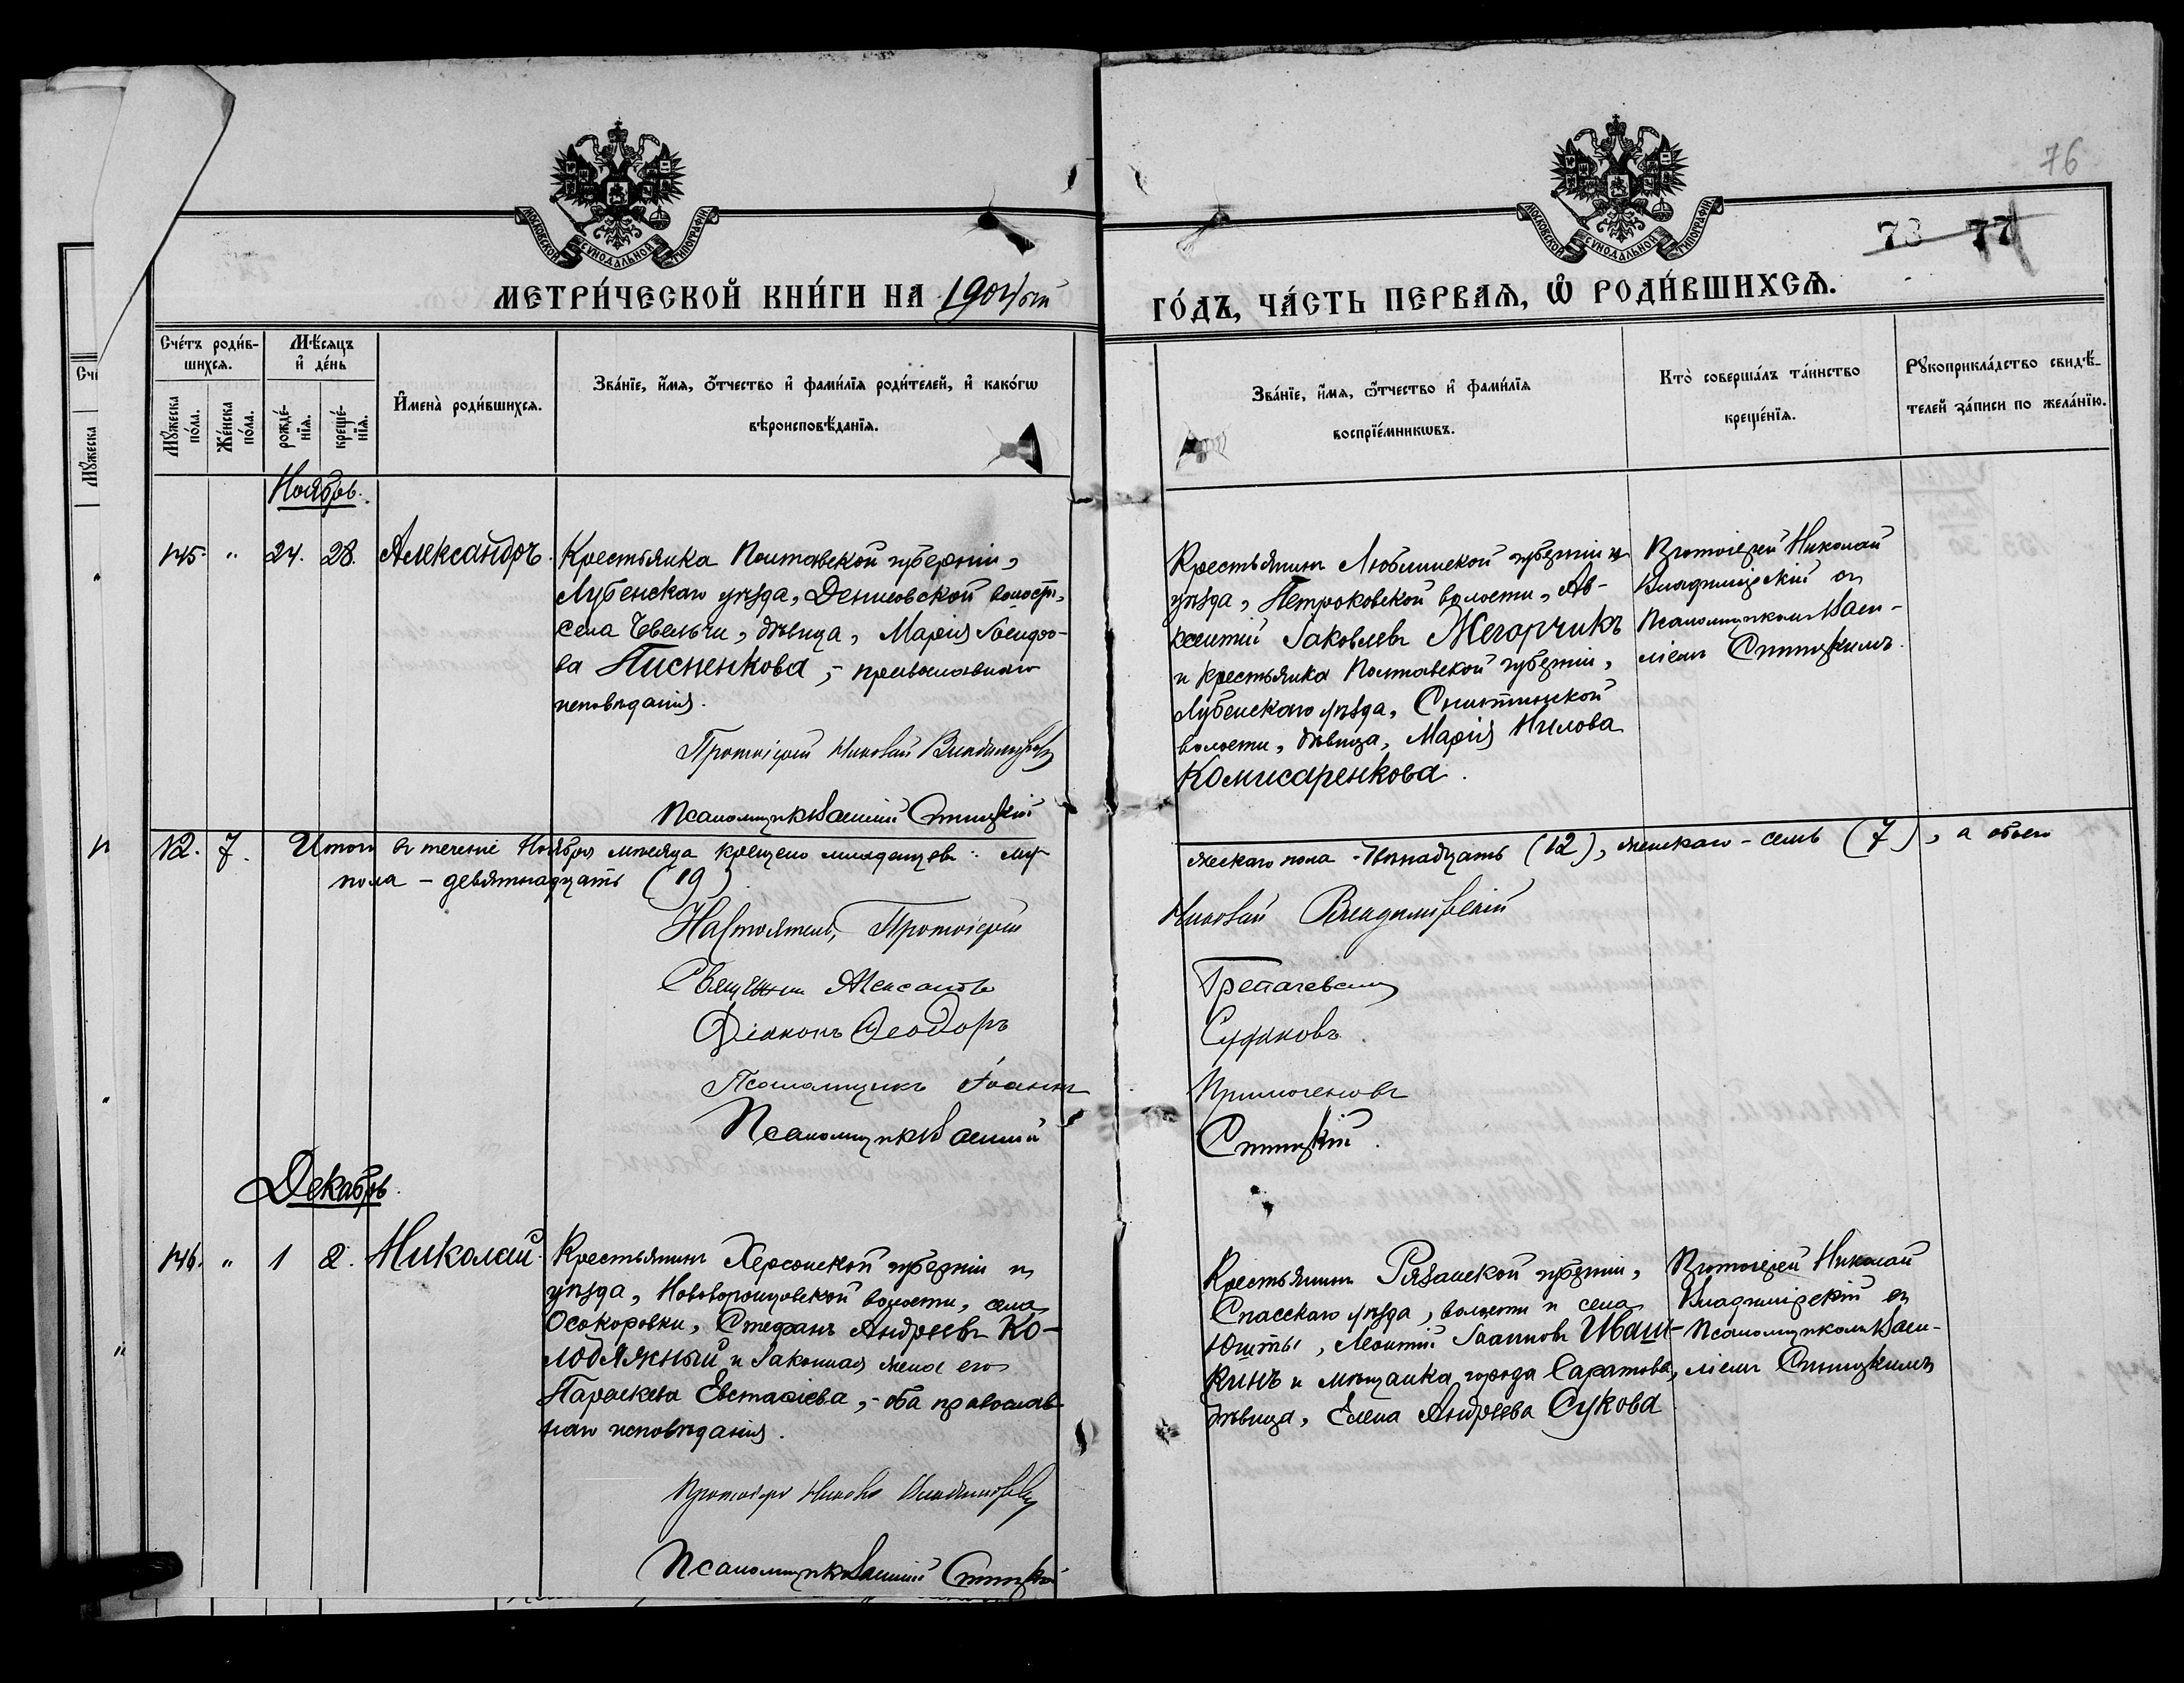 76
73 77
МОСКОВСКОЙ СУНОДАЛЬНОЙ ТИПОГРАФІИ
МОСКОВСКОЙ СУНОДАЛЬНОЙ ТИПОГРАФІИ
МЕТРИ́ЧЕСКОЙ КНИ́ГИ НА 1904ый
ГО́ДЪ, ЧА́СТЬ ПЕРВАЯ, Ѡ РОДИ́ВШИХСЯ.
Сче́тъ роди́в-
шихся.
Мѣ́сяцъ
и҆ де́нь
Мꙋжеска
по́ла.
Же́нска
по́ла.
рожде́-
нїя.
креще́-
нїя.
И҆мена̀ роди́вшихся.
Зва́нїе, и҆́мя, ѻ҆́тчество и҆ фами́лїя роди́телей, и҆ како́гѡ
вѣроисповѣ́данїя.
Зва́нїе, и҆́мя, ѻ҆́тчество и҆ фами́лїя
воспрїе́мникѡвъ.
Кто̀ соверша́лъ та́инство
креще́нїя.
Рꙋкоприкла́дство свидѣ́-
телей за́писи по жела́нїю.
Ноябрь.
145. " 24. 28. Александръ.
Крестьянка Полтавской губерніи,
Лубенскаго уѣзда, Денисовской волости,
села Чевельчи, дѣвица, Марія
ва Писненкова, - православнаго
исповѣданія.
Протоіерей Николай Владимірскій
Псаломщикъ Василій Спицкій
Крестьянинъ Люблинской губерніи и
уѣзда, Петроковской волости, Ав-
ксентій Іаковлевъ Жегорчикъ
и крестьянка Полтавской губерніи,
Лубенскаго уѣзда, Снитинской
волости, дѣвица, Марія Нилова
Комисаренкова.
Протоіерей Николай
Владимірскій съ
Псаломщикомъ Васи-
ліемъ Спицкимъ.
12. 7. Итого въ теченіе Ноября мѣсяца крещено младенцевъ: му-
жескаго пола - двѣнадцать (12), женскаго - семь (7), а обоего
пола - девятнадцать (19)
Настоятель, Протоіерей
Николай Владимірскій
Священникъ Александръ
Діаконъ Ѳеодоръ
Судаковъ.
Псаломщикъ Іоаннъ
Псаломщикъ Василій
Спицкій.
Декабрь.
146. " 1 2. Николай.
Крестьянинъ Херсонской губерніи и
уѣзда, Нововоронцовской волости, села
Осокоровки, Стефанъ Андреевъ Ко-
лодяжный и законная жена его
Параскева Евстафіева, - оба православ-
наго исповѣданія.
Протоіерей Николай Владимірскій
Псаломщикъ Василій Спицкій
Крестьянинъ Рязанской губерніи,
Спасскаго уѣзда, волости и села
Ижевскаго, Леонтій Іоанновъ Иваш-
кинъ и мѣщанка города Саратова,
дѣвица, Елена Андреева Сукова
Протоіерей Николай
Владимірскій съ
Псаломщикомъ Васи-
ліемъ Спицкимъ